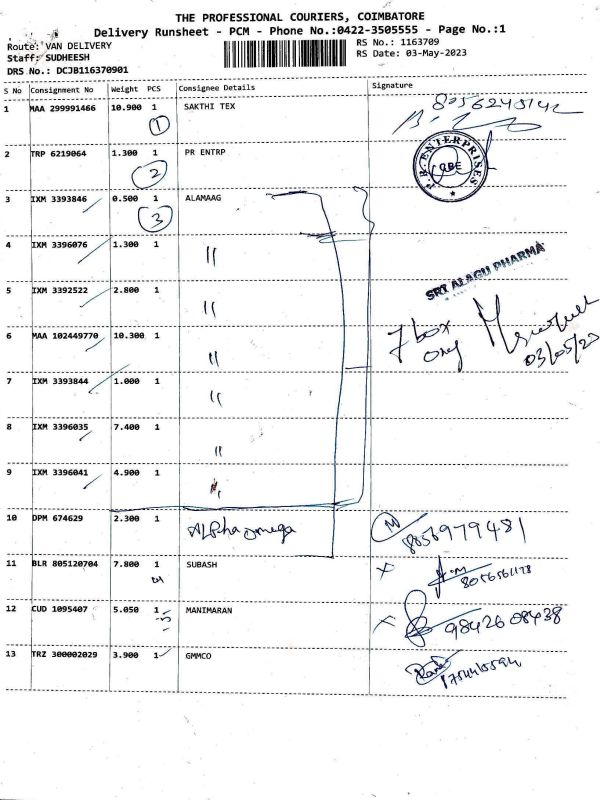 THE PROFESSIONAL COURIERS, COIMBATORE
Delivery Runsheet - PCM - Phone No.:0422-3505555 - Page No.:1
Route: VAN DELIVERY
Staff: SUDHEESH
DRS No.: DCJB116370901
RS No.: 1163709
RS Date: 03-May-2023
S No Consignment No Weight PCS Consignee Details Signature
1 MAA 299991466 10.900 1 SAKTHI TEX 8056245142
1
2 TRP 6219064 1.300 1 PR ENTRP
2
P.R. ENTERPRISES
CBE
3 IXM 3393846 0.500 1 ALAMAAG
3
4 IXM 3396076 1.300 1 "
SRI ALAGU PHARMA
5 IXM 3392522 2.800 1 "
7 box
only
03/05/23
6 MAA 102449770 10.300 1 "
7 IXM 3393844 1.000 1 "
8 IXM 3396035 7.400 1 "
9 IXM 3396041 4.900 1 "
10 DPM 674629 2.300 1 ALPha omega
8056979481
11 BLR 805120704 7.800 1 SUBASH
8056561128
12 CUD 1095407 5.050 1 MANIMARAN
9842608438
13 TRZ 300002029 3.900 1 GMMCO